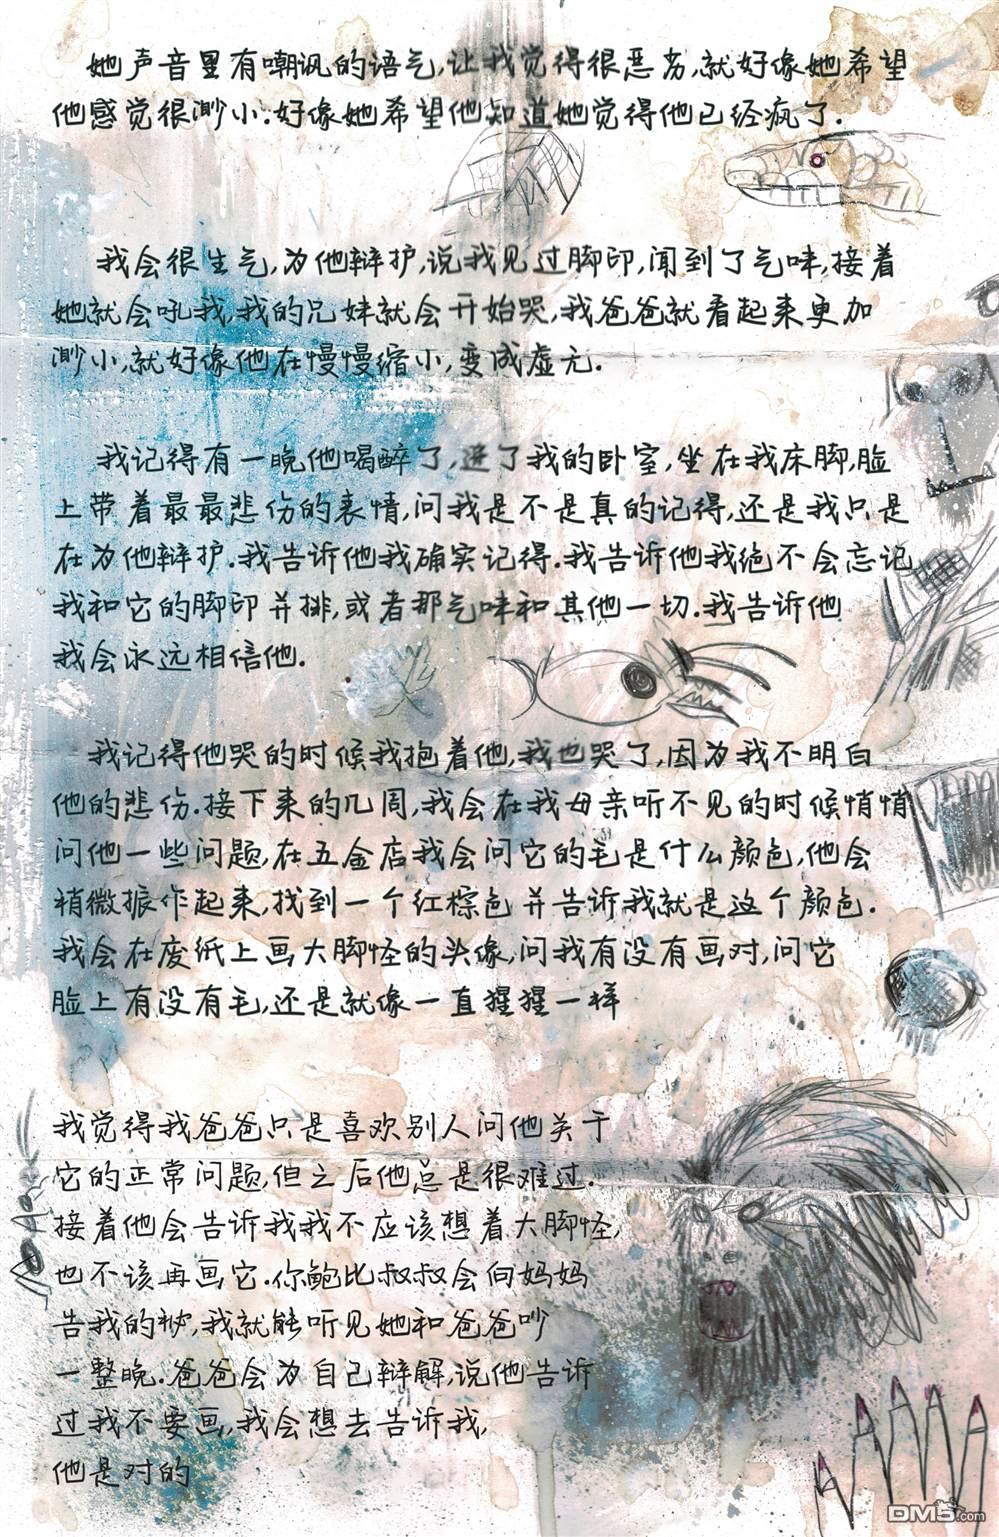 她声音里有嘲讽的语气,让我觉得很恶劣,就好像她希望
他感觉很渺小.好像她希望他知道她觉得他已经疯了.
我会很生气,为他辩护,说我见过脚印,闻到了气味,接着
她就会吼我,我的兄妹就会开始哭,我爸爸就看起来更加
渺小,就好像他在慢慢缩小,变成虚无.
我记得有一晚他喝醉了,进了我的卧室,坐在我床脚,脸
上带着最最悲伤的表情,问我是不是真的记得,还是我只是
在为他辩护.我告诉他我确实记得.我告诉他我绝不会忘记
我和它的脚印并排,或者那气味和其他一切.我告诉他
我会永远相信他.
我记得他哭的时候我抱着他,我也哭了,因为我不明白
他的悲伤.接下来的几周,我会在我母亲听不见的时候悄悄
问他一些问题,在五金店我会问它的毛是什么颜色,他会
稍微振作起来,找到一个红棕色并告诉我就是这个颜色.
我会在废纸上画大脚怪的头像,问我有没有画对,问它
脸上有没有毛,还是就像一直猩猩一样
我觉得我爸爸只是喜欢别人问他关于
它的正常问题,但之后他总是很难过.
接着他会告诉我我不应该想着大脚怪,
也不该再画它.你鲍比叔叔会向妈妈
告我的秘,我就能听见她和爸爸吵
一整晚.爸爸会为自己辩解,说他告诉
过我不要画,我会想去告诉我,
他是对的
DM5.com